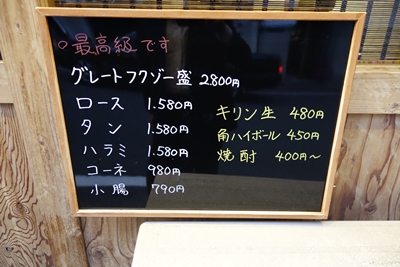 ○最高級です
グレートフクゾー盛 2800円
ロース 1.580円
タン 1.580円
ハラミ 1.580円
コーネ 980円
小腸 790円
キリン生 480円
角ハイボール 450円
焼酎 400円〜